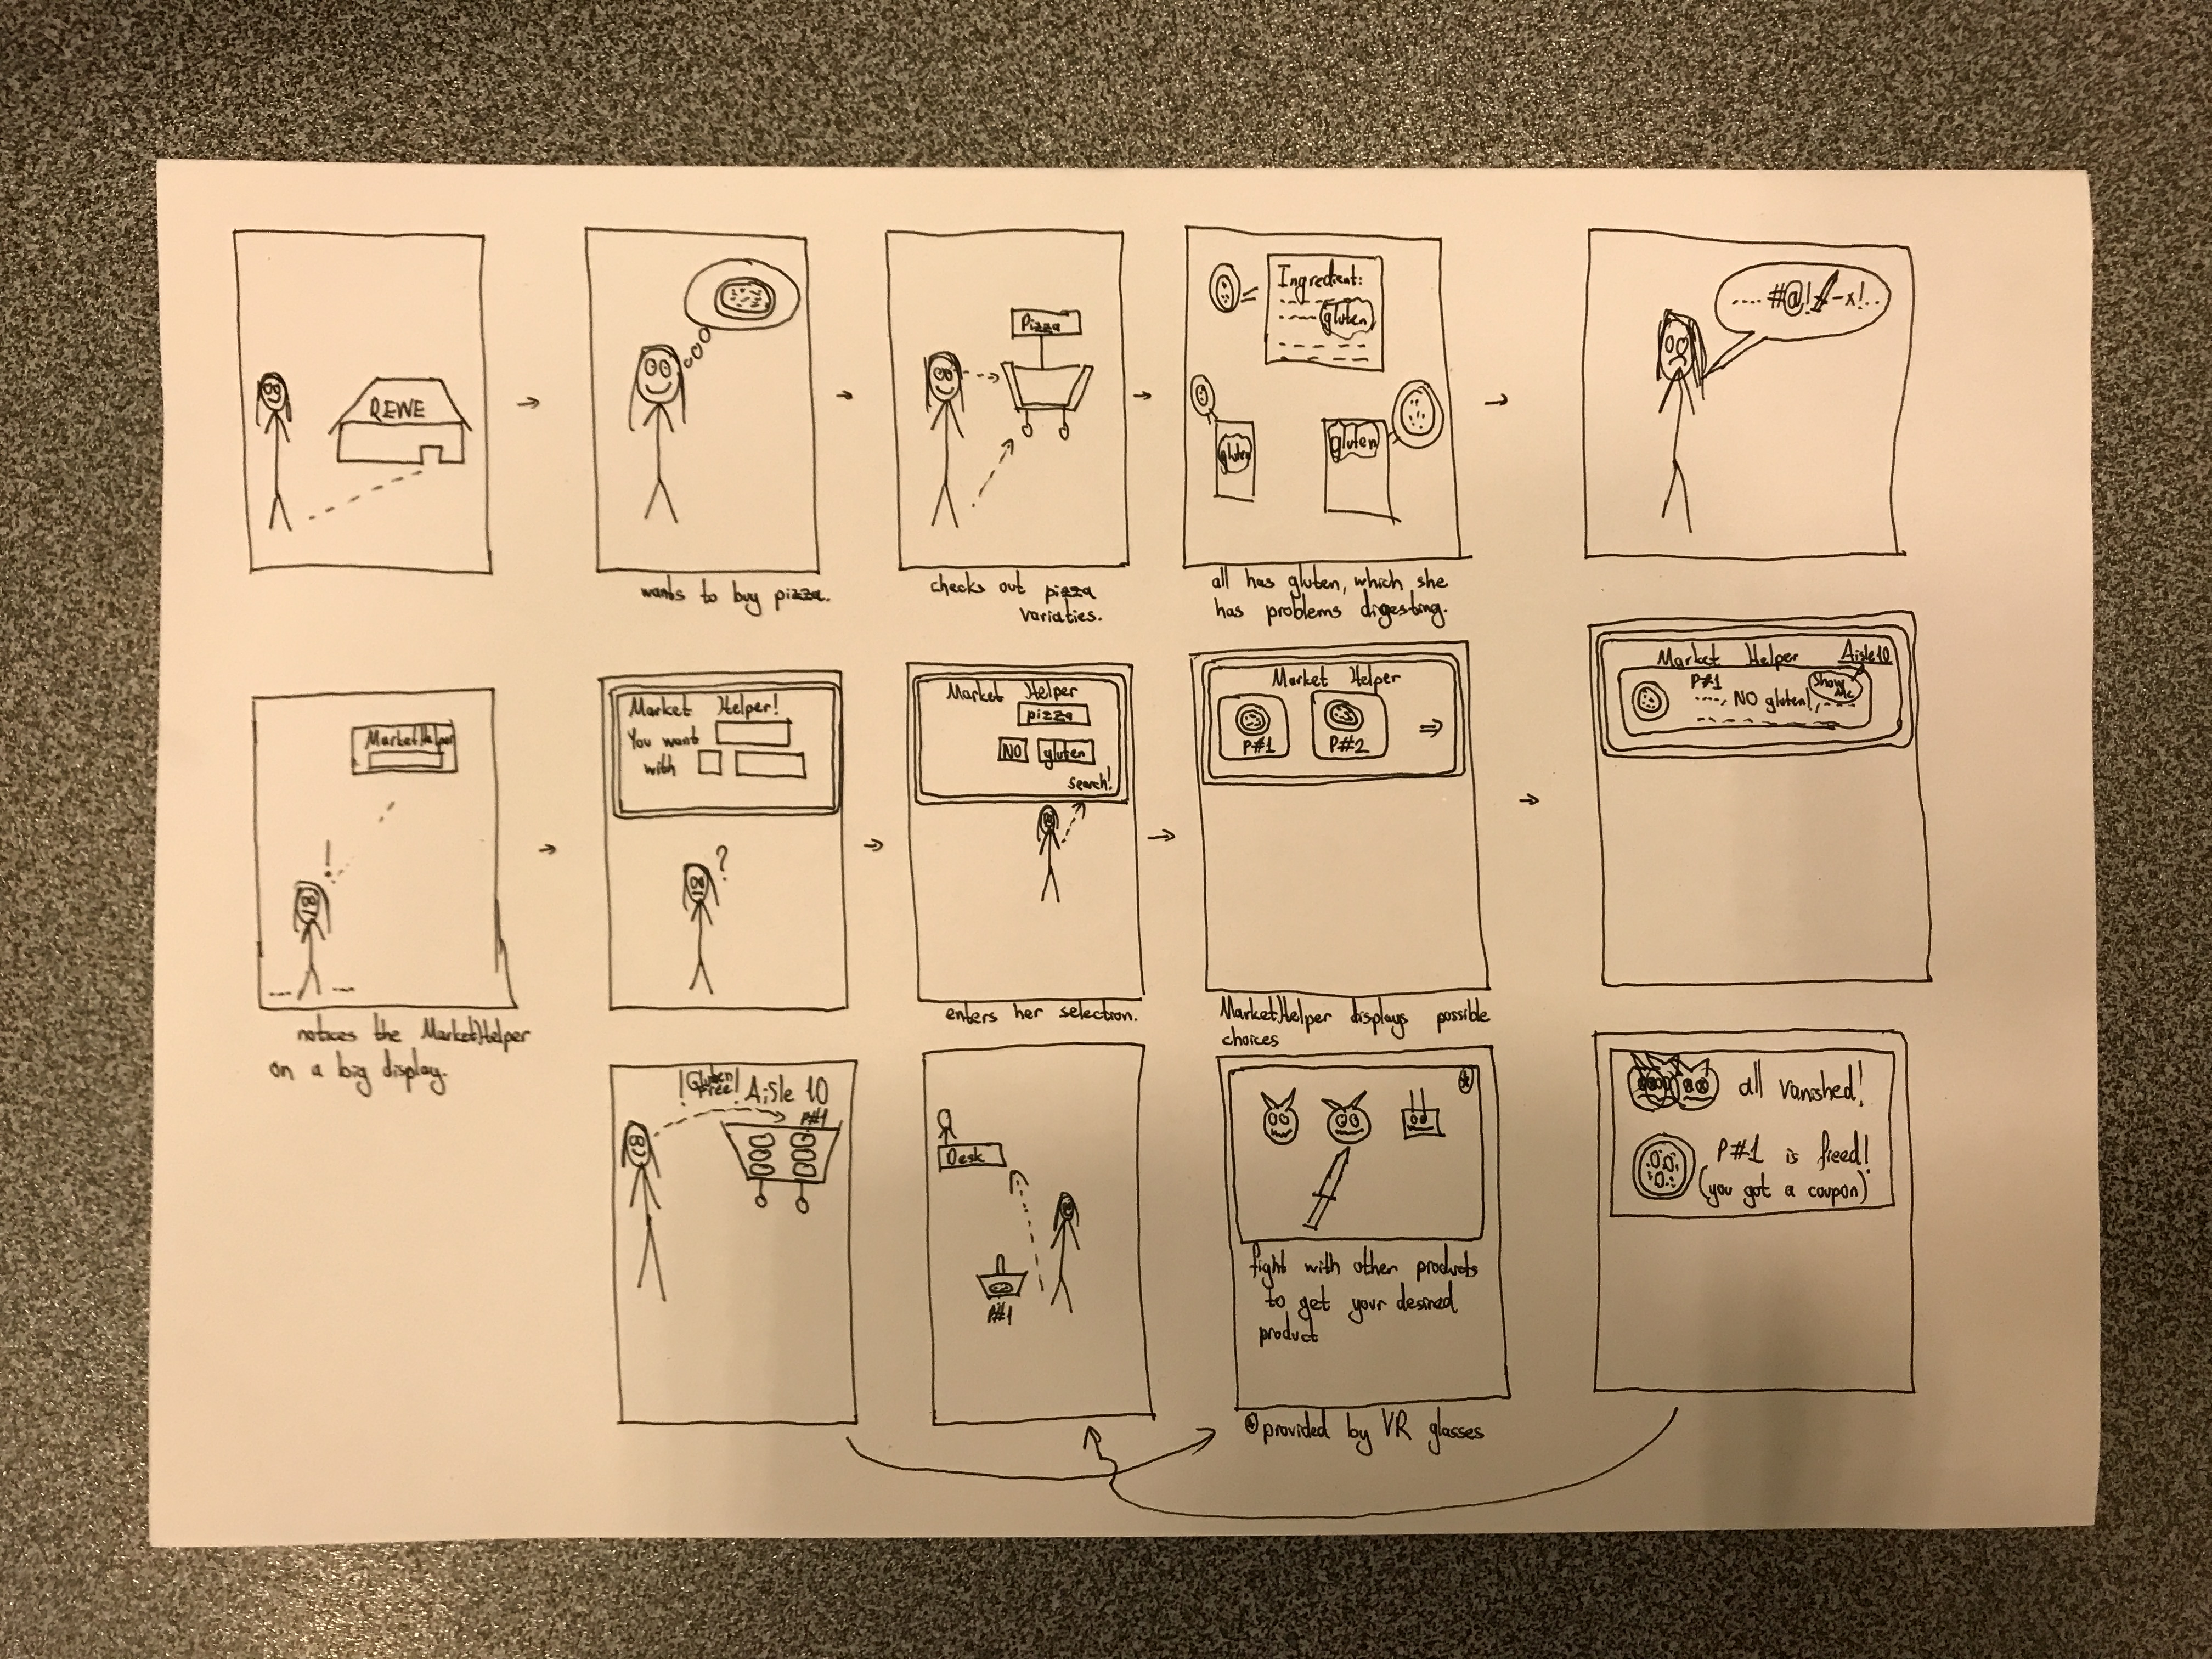 REWE
wants to buy pizza.
Pizza
checks out pizza
variaties.
Ingredient:
gluten
gluten
gluten
all has gluten, which she
has problems digesting.
.... #@!
-x!..
MarketHelper
!
notices the MarketHelper
on a big display.
Market Helper!
You want
with
?
Market Helper
pizza
NO gluten
search!
enters her selection.
Market Helper
P#1 P#2
MarketHelper displays possible
choices
Market Helper Aisle 10
P#1
Show
Me
NO gluten!
!Gluten
Free! Aisle 10
P#1
Desk
P#1
fight with other products
to get your desired
product
provided by VR glasses
all vanished!
P#1 is freed!
(you got a coupon)